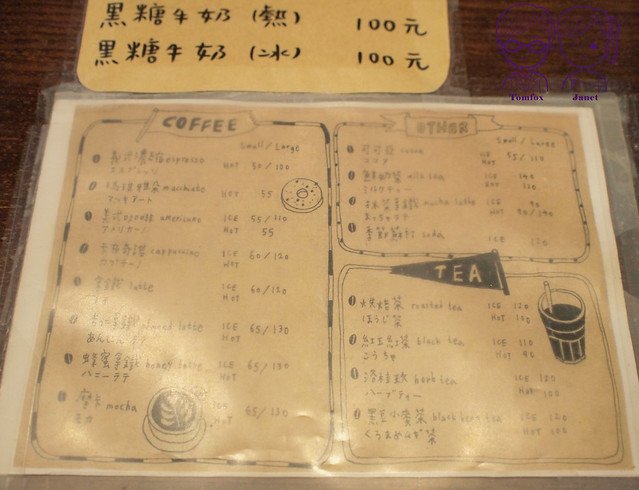 黑糖牛奶(熱) 100元
黑糖牛奶(冰) 100元
Tomfox Janet
COFFEE
Small/Large
義式濃縮 espresso HOT 50/100
エスプレッソ
macchiato HOT 55
マッキアート
美式 americano ICE 55/110
アメリカーノ HOT 55
卡布奇諾 cappuccino ICE 60/120
カプチーノ HOT
拿鐵 latte ICE 60/120
ラテ HOT
拿鐵 almond latte ICE 65/130
HOT
蜂蜜拿鐵 honey latte ICE 65/130
ハニーラテ HOT
摩卡 mocha ICE 65/130
モカ HOT
OTHER
Small/Large
可可亞 cocoa ICE 55/110
ココア HOT
鮮奶茶 milk tea ICE 140
ミルクティー HOT 120
抹茶拿鐵 ICE 90
まっちゃラテ HOT
季節蘇打 soda ICE 120
TEA
烘焙茶 roasted tea ICE 120
ほうじ茶 HOT 100
紅玉紅茶 black tea ICE 110
こうちゃ HOT 90
herb tea ICE 120
ハーブティー HOT 100
黑豆小麥茶 black bean tea ICE 120
HOT 100